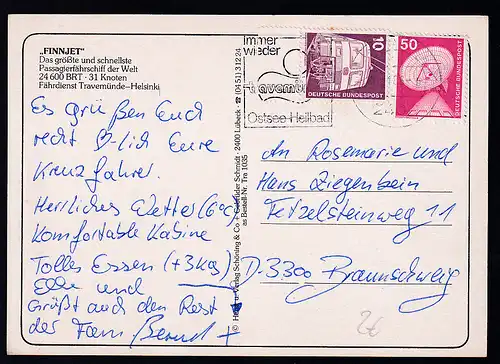 „FINNJET"
Das größte und schnellste
Passagierfährschiff der Welt
24 600 BRT · 31 Knoten
Fährdienst Travemünde–Helsinki
Es grüßen Euch
recht ♡-lich Eure
Kreuzfahrer.
Herrliches Wetter (6°C)
Komfortable Kabine
Tolles Essen (+3kg)
Elke und
Grüßt auch den Rest
der Fam. Bernd
Schöning & Co + Gebrüder Schmidt · 2400 Lübeck · ☎ (04 51) 3 12 24
Bestell-Nr. Tra 1035
immer
wieder
Travemünde
Ostsee-Heilbad
10
DEUTSCHE BUNDESPOST
50
DEUTSCHE BUNDESPOST
An Rosemarie und
Hans Ziegenbein
Fetzelsteinweg 11
D-3300 Braunschweig